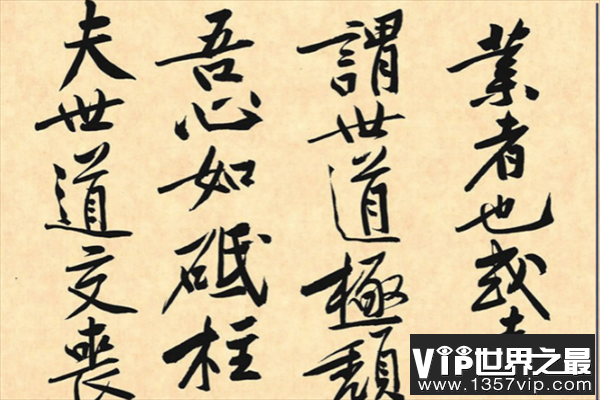 業者也或
謂世道極頹
吾心如砥柱
夫世道交喪
VIP世界之最
www.1357vip.com